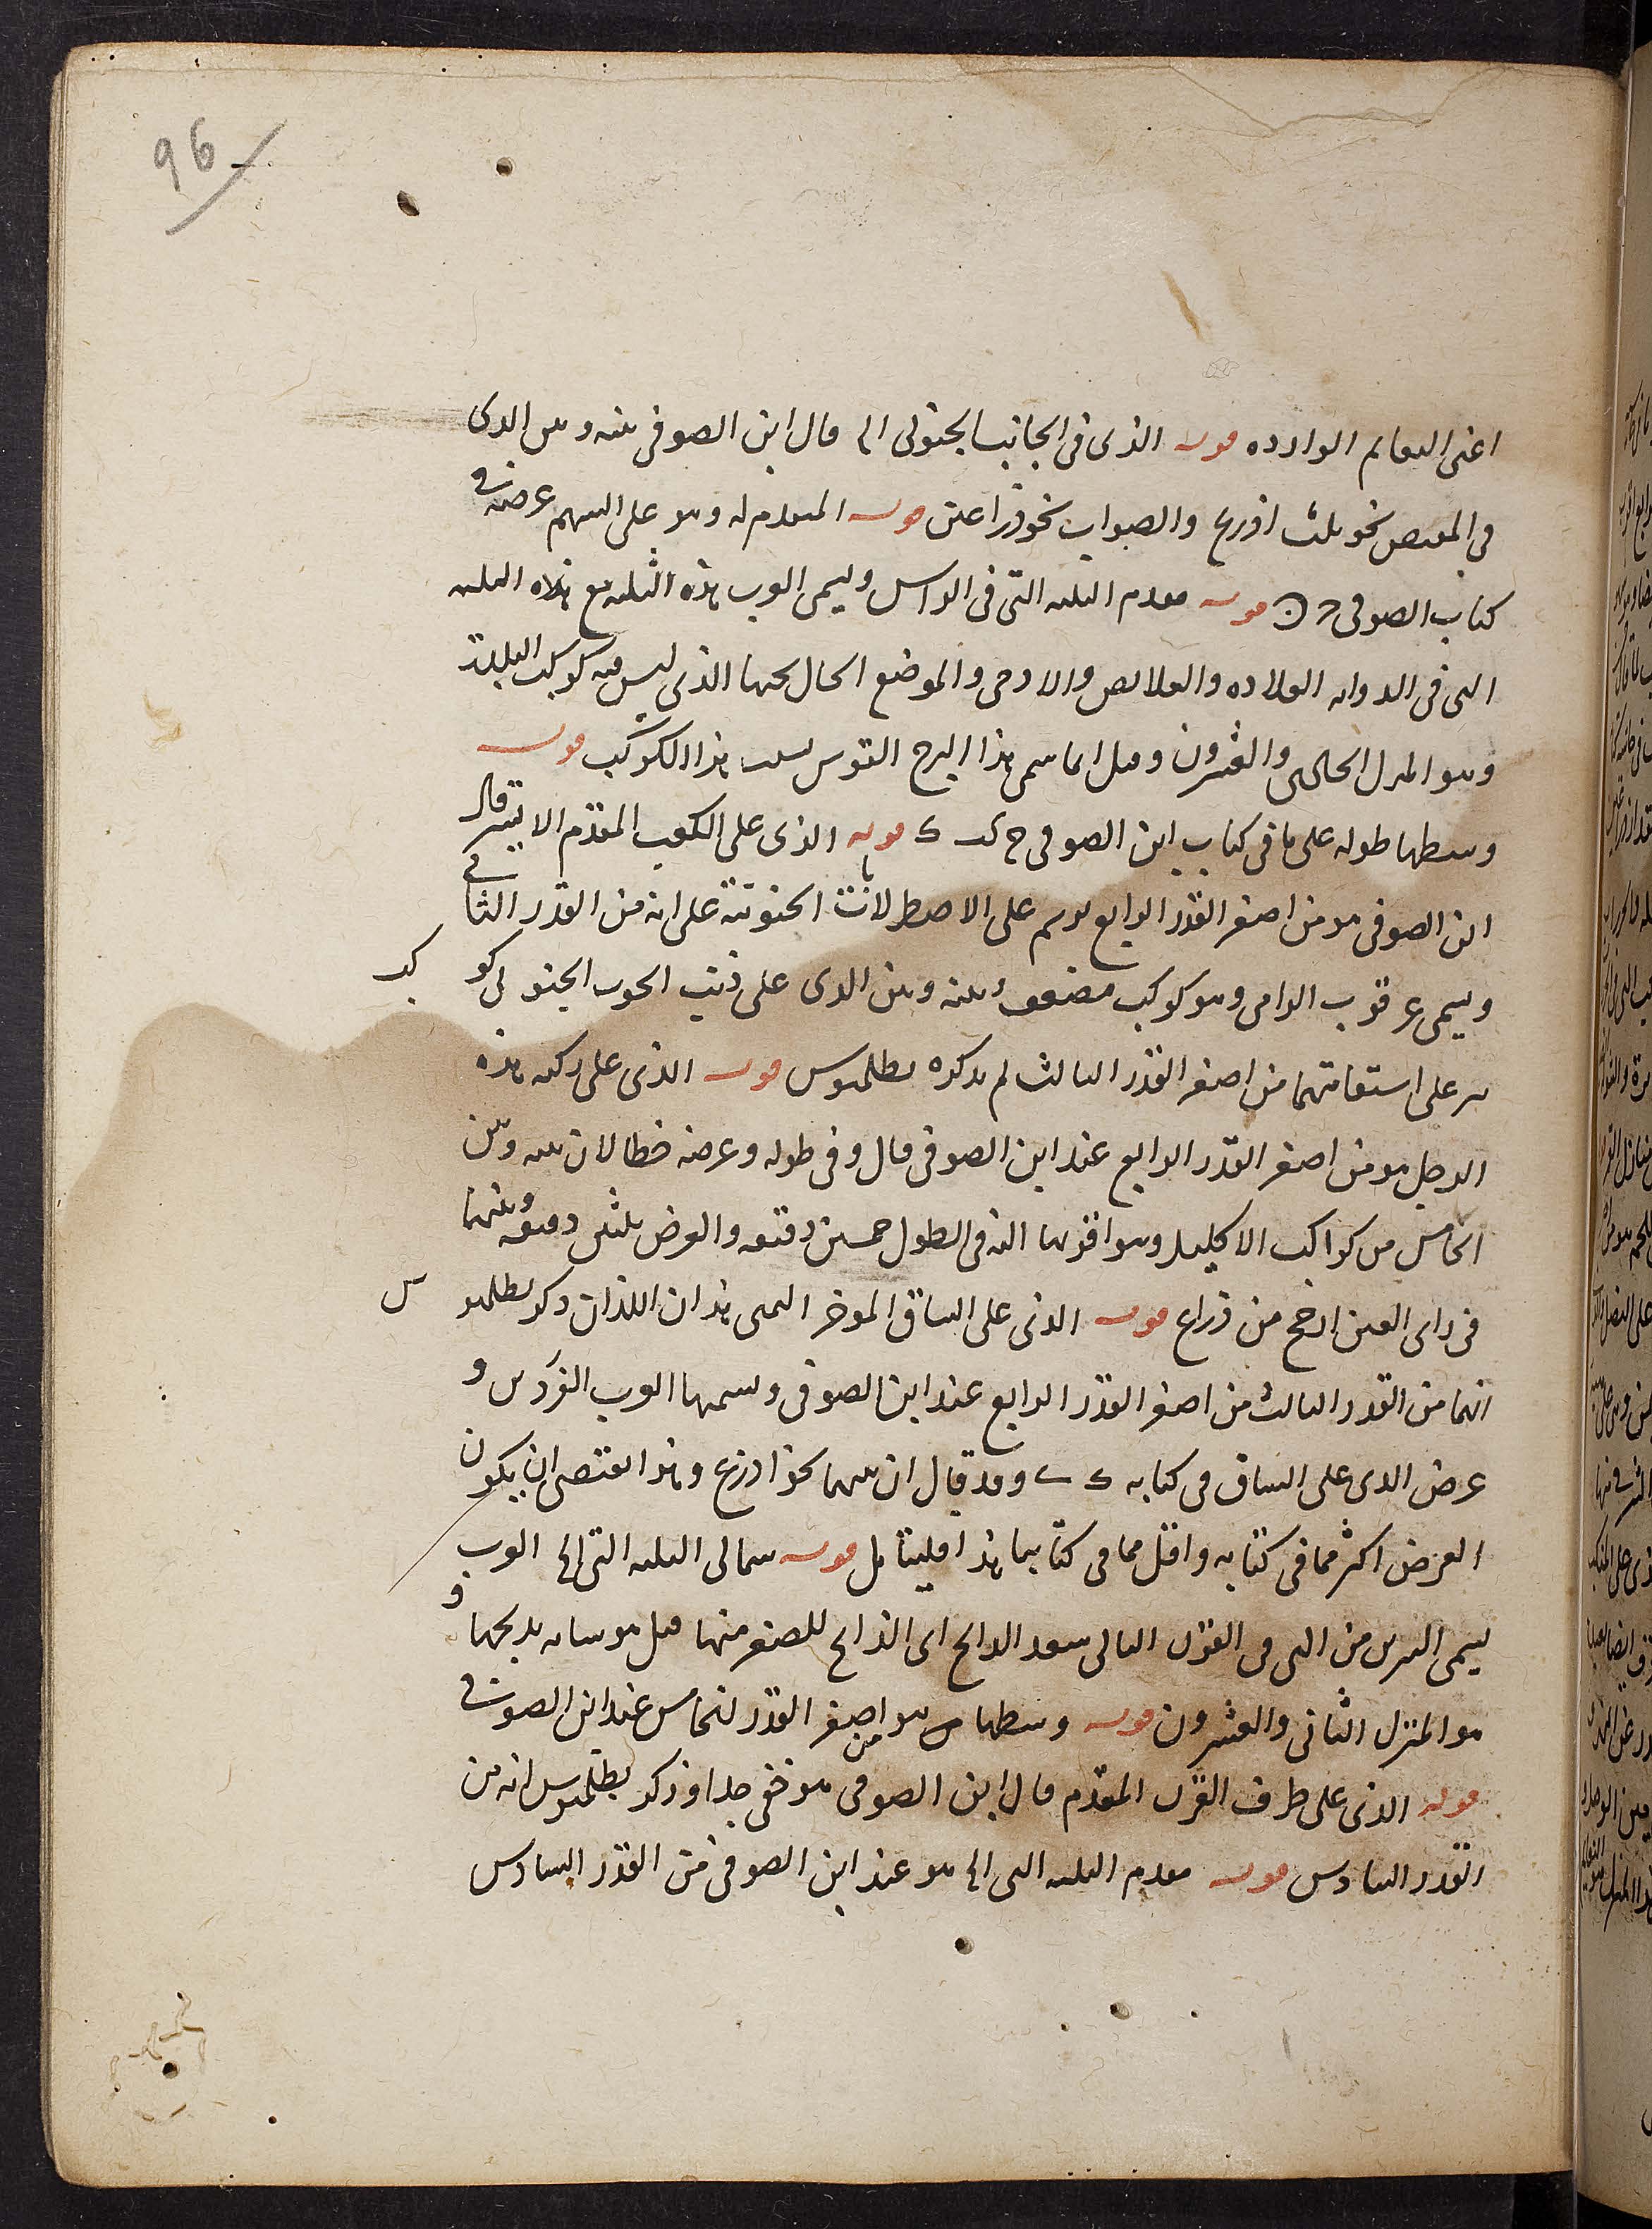 96
اعنى النعايم الوارده قوله الذى فى الجانب الجنوبى الخ قال ابن الصوفى بينه وبين الذى
فى المقبض نحو ثلث اذرع والصواب نحو ذراعين قوله المتقدم له وهو على السهم عرضه فى
كتاب الصوفى قوله مقدم الثلثه التى فى الراس ويسمى العرب هذه الثلثه مع هذه الثلثه
التى فى الذوابه القلاده والقلائص والادحى والموضع الخالى تحتها الذى ليس فيه كوكب البلدة
وهو المنزل الحادى والعشرون وقيل انما سمى هذا البرج القوس بسبب هذا الكوكب قوله
وسطها طوله على ما فى كتاب ابن الصوفى ح ك قوله الذى على الكعب المقدم الايسر قال
ابن الصوفى هو من اصغر القدر الرابع يرسم على الاصطرلابات الجنوبية على انه من القدر الثانى
ويسمى عرقوب الرامى وهو كوكب مضعف وبينه وبين الذى على ذنب الحوت الجنوبى كوكب
على استقامتهما من اصغر القدر الثالث لم يذكره بطلميوس قوله الذى على ركبه هذه
الرجل هو من اصغر القدر الرابع عند ابن الصوفى قال وفى طوله وعرضه خطا لان بينه وبين
الخامس من كواكب الاكليل وهو اقربها اليه فى الطول خمسين دقيقه والعرض ثلثى دقيقه وبينهما
فى راى العين ارجح من ذراع قوله الذى على الساق الموخر اليمنى هذان اللذان ذكر بطلميوس
انهما من القدر الثالث من اصغر القدر الرابع عند ابن الصوفى ويسميهما العرب الفردين و
عرض الذى على الساق فى كتابه وقد قال ان بينهما نحو اذرع وهذا يقتضى ان يكون
العرض اكثر مما فى كتابه واقل مما فى كتابنا هذا فليتامل قوله شمالى الثلثه التى الخ العرب
يسمى النيرين من التى فى القرن التالى سعد الذابح اى الذابح للصغر منهما قيل هو شاته يذبحها و
هو المنزل الثانى والعشرون قوله وسطها هو من اصغر القدر الخامس عند ابن الصوفى
قوله الذى على طرف القرن المقدم قال ابن الصوفى هو خفى جدا وذكر بطلميوس انه من
القدر السادس قوله مقدم الثلثه التى الخ هو عند ابن الصوفى من القدر السادس